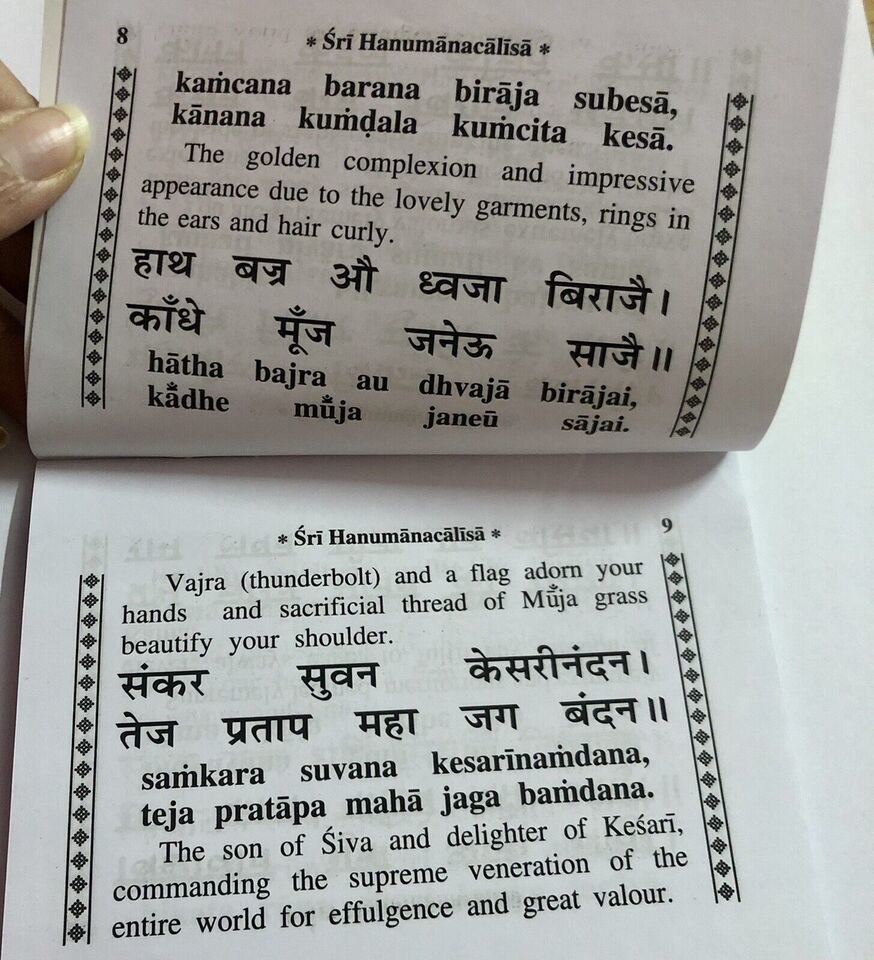 8
* Śrī Hanumānacālīsā *
kaṁcana barana birāja subesā,
kānana kuṁḍala kuṁcita kesā.
The golden complexion and impressive
appearance due to the lovely garments, rings in
the ears and hair curly.
हाथ बज्र औ ध्वजा बिराजै।
काँधे मूँज जनेऊ साजै॥
hātha bajra au dhvajā birājai,
kā̐dhe mū̐ja janeū sājai.
* Śrī Hanumānacālīsā *
9
Vajra (thunderbolt) and a flag adorn your
hands and sacrificial thread of Mū̐ja grass
beautify your shoulder.
संकर सुवन केसरीनंदन।
तेज प्रताप महा जग बंदन॥
saṁkara suvana kesarīnaṁdana,
teja pratāpa mahā jaga baṁdana.
The son of Śiva and delighter of Keśarī,
commanding the supreme veneration of the
entire world for effulgence and great valour.